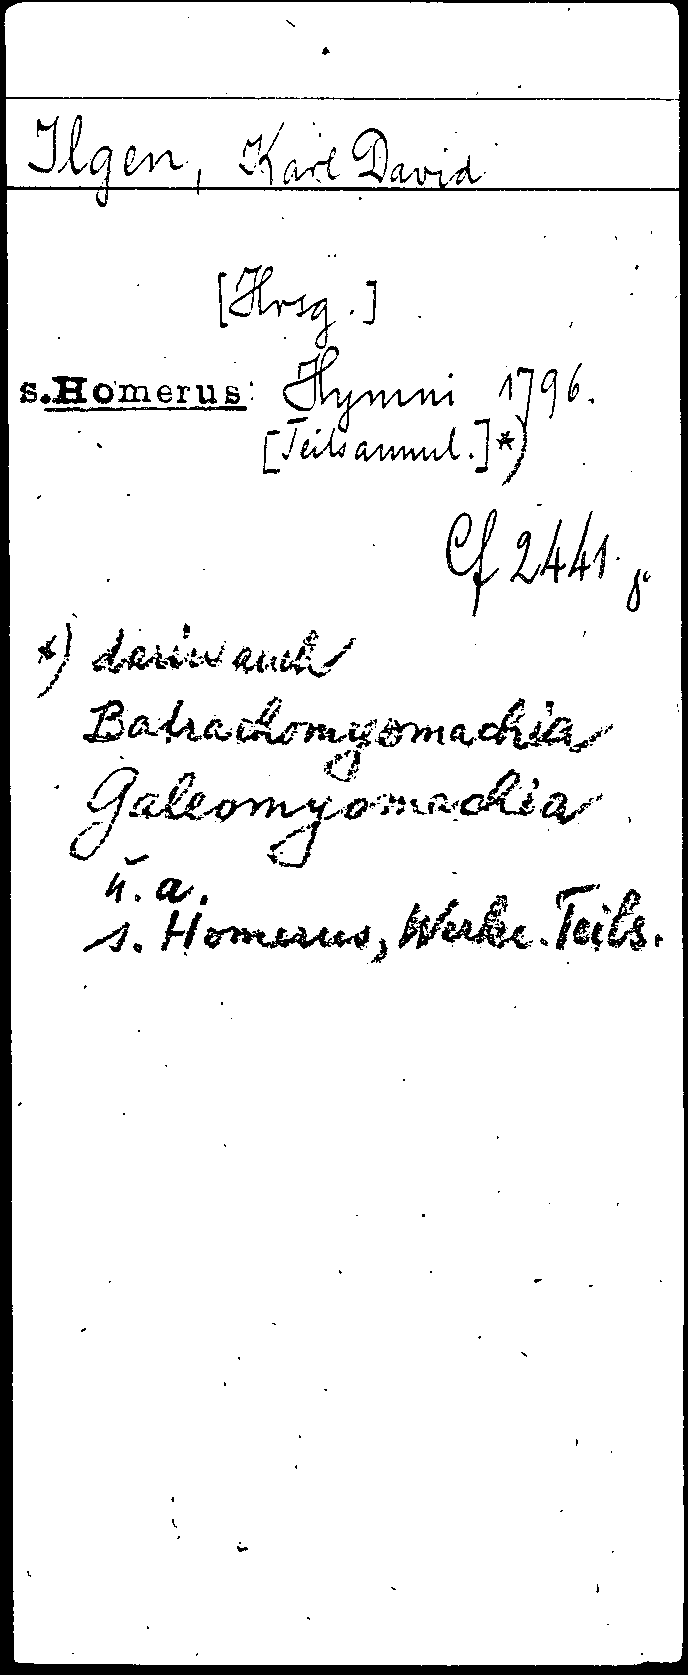 Ilgen, Karl David
[Hrsg.]
s. Homerus: Hymni 1796.
[Teilsamml.]*)
Cf 2441 8°
*) darin auch
Batrachomyomachia
Galeomyomachia
u. a.
s. Homerus, Werke. Teils.